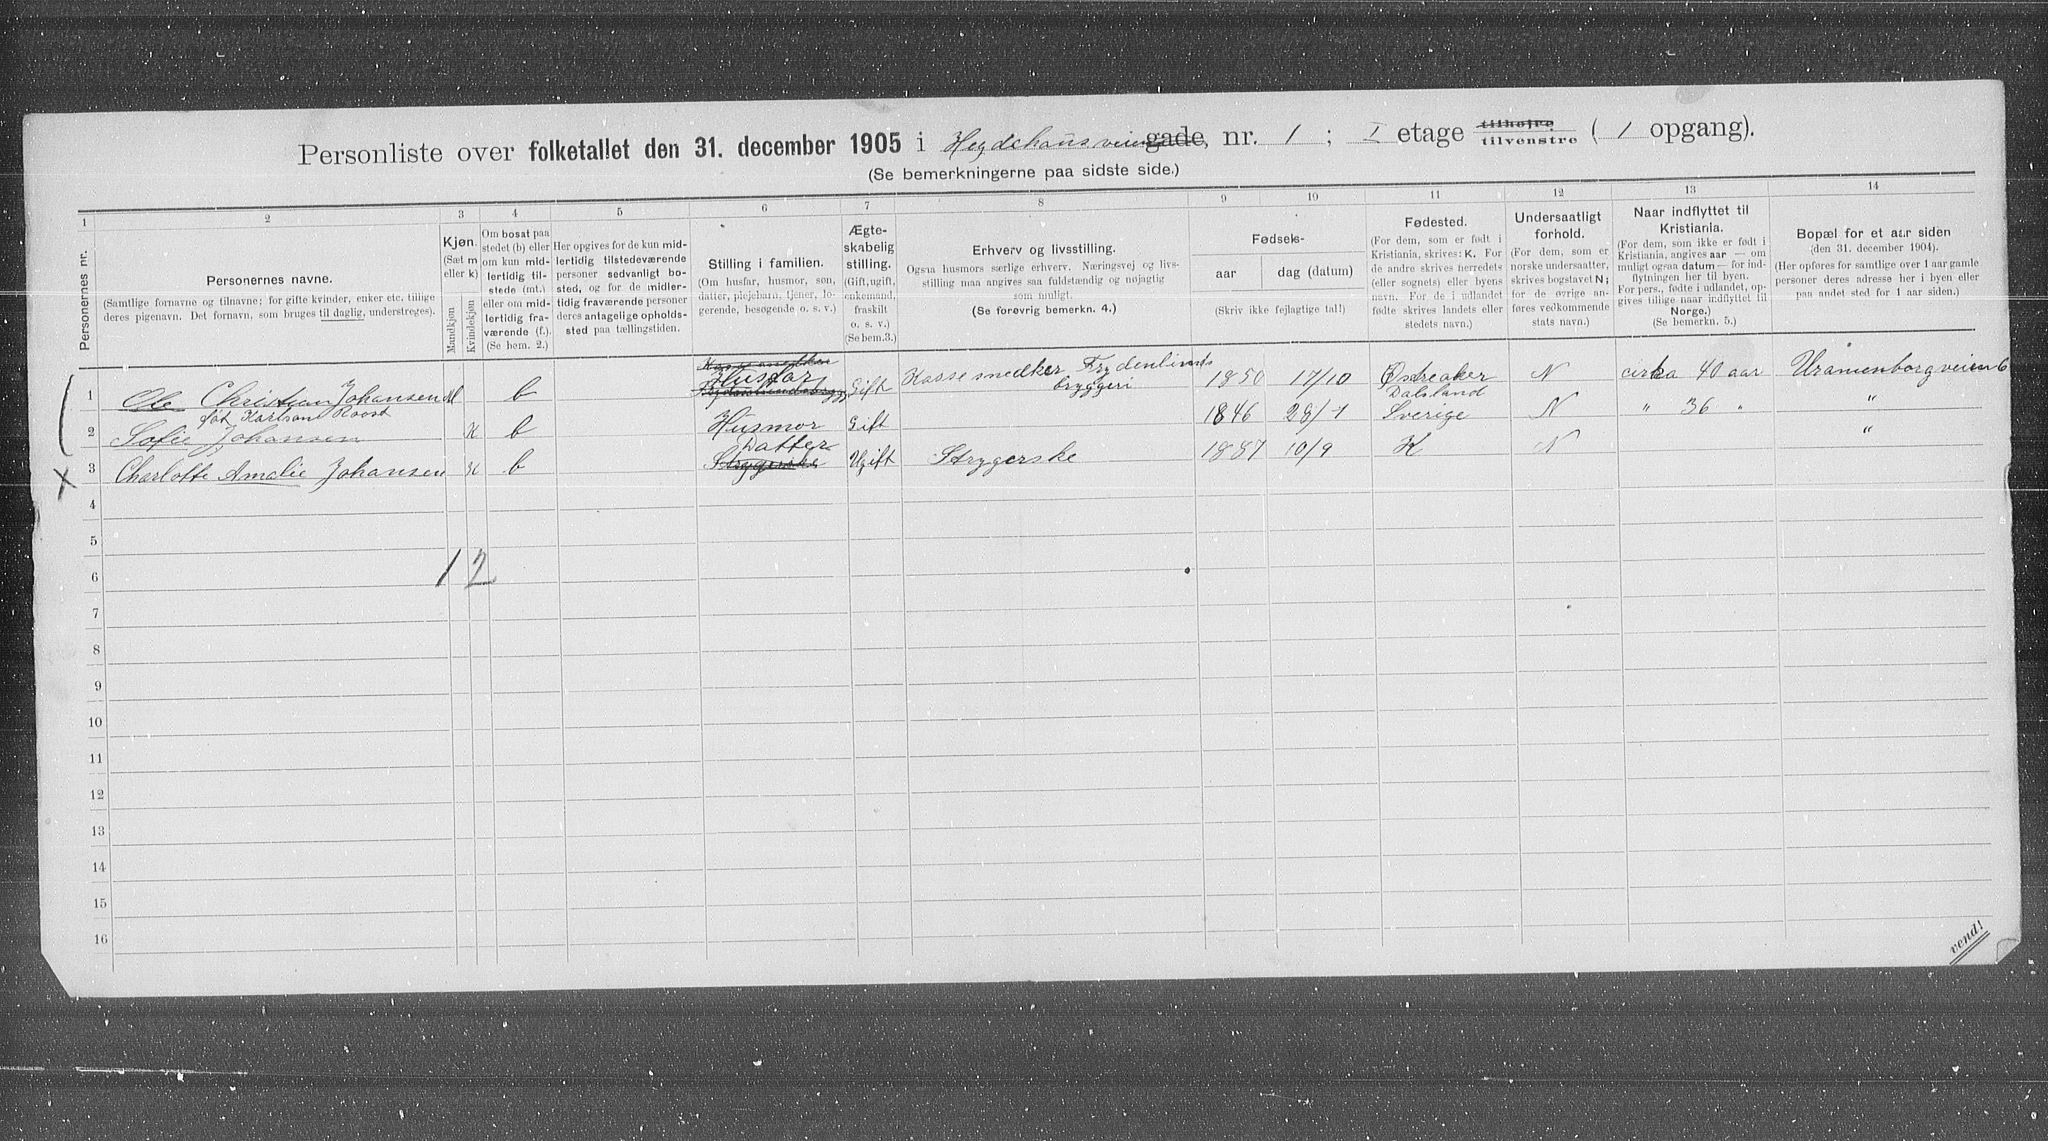 Personliste over folketallet den 31. december 1905 i Hegdehausveien gade, nr. 1 ; I etage tilhøjre tilvenstre ( 1 opgang).
(Se bemerkningerne paa sidste side.)
1 2 3 4 5 6 7 8 9 10 11 12 13 14
Personernes nr.
Personernes navne.
(Samtlige fornavne og tilnavne; for gifte kvinder, enker etc. tillige
deres pigenavn. Det fornavn, som bruges til daglig, understreges).
Kjøn.
(Sæt m
eller k)
Mandkjøn
Kvindekjøn
Om bosat paa
stedet (b) eller
om kun mid-
lertidig til-
stede (mt.)
eller om mid-
lertidig fra-
værende (f.).
(Se bem. 2.)
Her opgives for de kun mid-
lertidig tilstedeværende
personer sedvanligt bo-
sted, og for de midler-
tidig fraværende personer
deres antagelige opholds-
sted paa tællingstiden.
Stilling i familien.
(Om husfar, husmor, søn,
datter, plejebarn, tjener, lo-
gerende, besøgende o. s. v.)
Ægte-
skabelig
stilling.
(Gift, ugift,
enkemand,
fraskilt
o. s. v.)
(Se bem.3.)
Erhverv og livsstilling.
Ogsaa husmors særlige erhverv. Næringsvej og livs-
stilling maa angives saa fuldstændig og nøjagtig
som muligt.
(Se forøvrig bemerkn. 4.)
Fødsels-
aar dag (datum)
(Skriv ikke fejlagtige tal!)
Fødested.
(For dem, som er født i
Kristiania, skrives: K. For
de andre skrives herredets
(eller sognets) eller byens
navn. For de i udlandet
fødte skrives landets eller
stedets navn.)
Undersaatligt
forhold.
(For dem, som er
norske undersaatter,
skrives bogstavet N;
for de øvrige an-
føres vedkommende
stats navn.)
Naar indflyttet til
Kristiania.
(For dem, som ikke er født i
Kristiania, angives aar — om
muligt ogsaa datum — for ind-
flytningen her til byen.
For pers., fødte i udlandet, op-
gives tillige naar indflyttet til
Norge.)
(Se bemerkn. 5.)
Bopæl for et aar siden
(den 31. december 1904).
(Her opføres for samtlige over 1 aar gamle
personer deres adresse her i byen eller
paa andet sted for 1 aar siden.)
1 Ole Christian Johansen M b Husfar Gift Kassesnedker Frydenlunds bryggeri 1850 17/10 Østreaker N cirka 40 aar Uranienborgveien 6
født Karlson Roost Dalsland
2 Sofie Johansen K b Husmor Gift 1846 29/7 Sverige N " 36 " "
Datter
3 Charlotte Amalie Johansen K b Strygerske Ugift Strygerske 1887 10/9 K N "
4
5
1 2
6
7
8
9
10
11
12
13
14
15
16
vend!